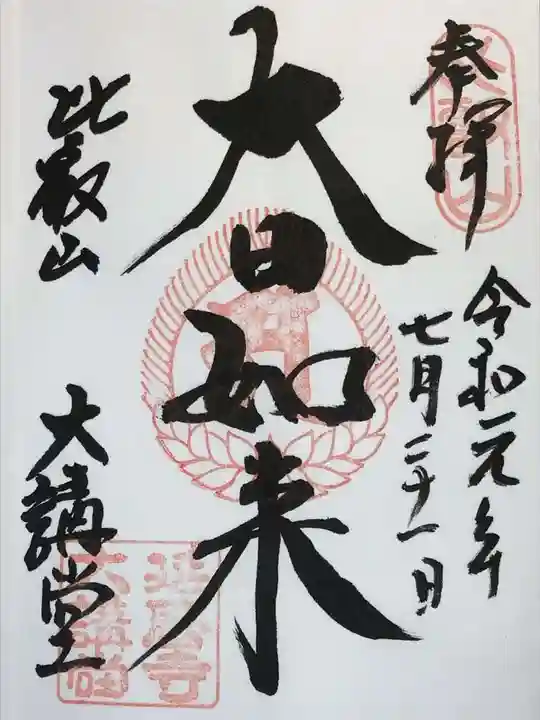 奉拝
令和元年
七月二十一日
大日如来
比叡山
大講堂
延暦寺
大講堂印